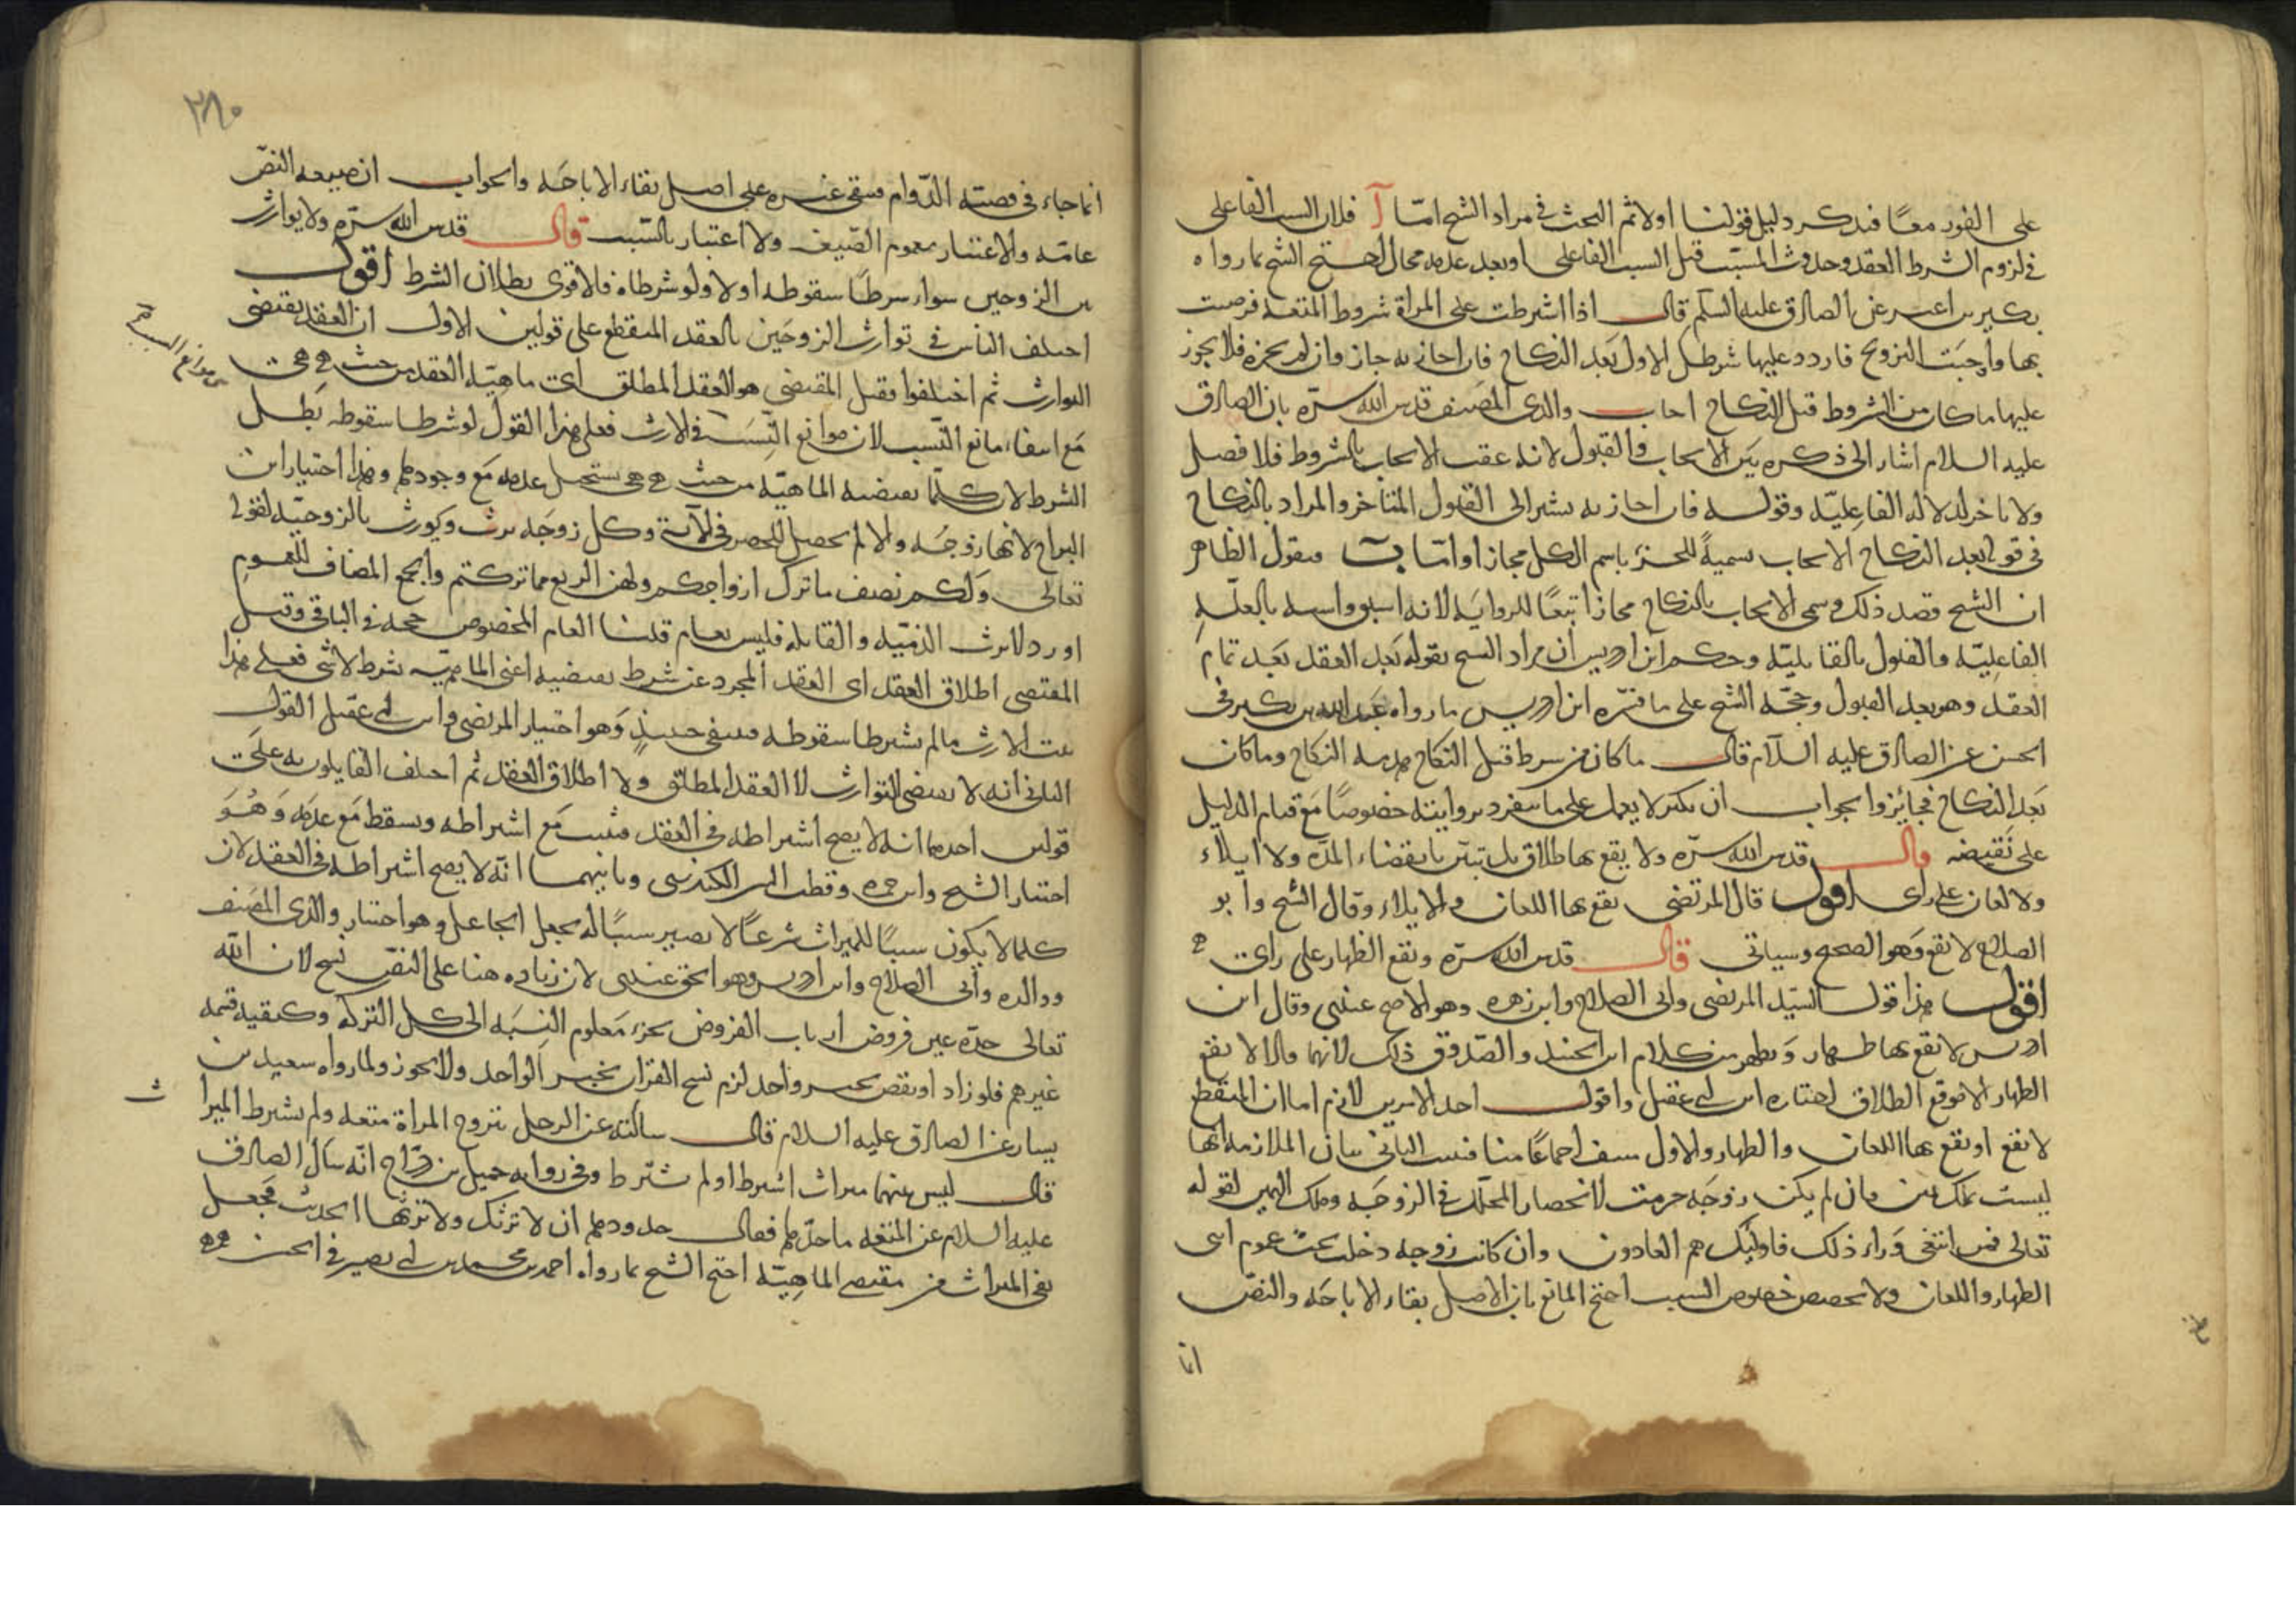 على الفور معًا فنذكر دليل قولنا اولا ثم البحث في مراد الشيخ امّا آ فلان السبب الفاعلى
في لزوم الشرط العقد وحدوث المسبّب قبل السبب الفاعلى او بعد عدمه محال احتج الشيخ بما رواه
بكير بن اعين عن الصادق عليه السلم قال اذا اشترطت على المراة شروط المتعة فرضيت
بها واجبَت التزويج فاردد عليها شرطك الاول بَعد النكاح فان اجازته جاز وان لم تجزه فلا يجوز
عليها ما كان من الشروط قبل النكاح اجاب والدى المصَنف قدس الله سرّه بان الصادق
عليه السلام اشار الى ذكره بَين الايجاب والقبول لانه عقب الايجاب بالشروط فلا فصل
ولا تاخر لدلالة الفاعليّة وقوله فان اجازته يشير الى القبول المتأخر والمراد بالنكاح
في قوله بعد النكاح الايجاب تسميةً للجزء باسم الكل مجازا وامّا ب فنقول الظاهر
ان الشيخ قصد ذلك وسمى الايجاب بالنكاح مجازا تبعًا للروايَة لانه اسبق واشبه بالعلّةِ
الفاعِليّة والقبول بالقابليّة وحكم ابن ادريس ان مراد الشيخ بقوله بَعد العقد بَعد تمام
العقد وهو بعد القبول وحجّة الشيخ على ما فسّره ابن ادريس ما رواه عَبد الله بن بكير في
الحسن عن الصادق عليه السلام قال ما كان من شرط قبل النكاح هدمه النكاح وما كان
بَعد النكاح فجائز والجواب ان بكير لا يعمل على ما ينفرد بروايته خصوصًا مَع قيام الدليل
على نَقيضه قال قدس الله سرّه ولا يقع بها طلاق بل تبيَن بانقضاء المدّة ولا ايلاء
ولا لعان على راى اقول قال المرتضى يقع بها اللعان والايلاء وقال الشيخ وابو
الصلاح لا يقع وَهو الصحيح وسياتى قال قدس الله سرّه ويقع الظهار على راى
اقول هذا قول السيّد المرتضى وابى الصلاح وابن زهرة وهو الاصح عندى وقال ابن
ادريس لا يقع بها ظهار وَيظهر من كلام ابن الجنيد والصّدوق ذلك لانهما قالا لا يقع
الظهار الا موقع الطلاق واختاره ابن ابى عقيل واقول احد الامرين لازم اما ان المنقطع
لا يقع او يقع بها اللعان والظهار والاول منتف اجماعًا منا فثبت الثانى بيان الملازمة انها
ليست بملك يمين فان لم يكن زوجَة حرمت لانحصار المحلّل في الزوجَة وملك اليمين لقوله
تعالى فمن ابتغى وَراء ذلك فاولئك هم العادون وان كانت زوجة دخلت تحت عموم آيتى
الظهار واللعان ولا يخصص خصوص السبب احتج المانع بان الاصل بقاء الاباحَة والنصّ
انما
٢٨٠
انما جاء في قصّة الدّوام فبقى غيره على اصل بقاء الاباحَة والجواب ان صيغة النصّ
عامّة والاعتبار بعموم الصّيغة ولا اعتبار بالسّبب قال قدس الله سرّه ولا توارث
بين الزوجين سواء شرطا سقوطه او لا ولو شرطاه فالاقوى بطلان الشرط اقول
اختلف الناس في توارث الزوجَين بالعقد المنقطع على قولين الاول ان العقد يقتضى
التوارث ثم اختلفوا فقيل المقتضى هو العقد المطلق اى ماهيّة العقد من حيث هى هى
مَع انتفاء مانع النّسب لان موانع النّسَب في الارث فعلى هذا القول لو شرطا سقوطه بَطل
الشرط لان كلّما تقتضيه الماهيّة من حيث هى هى يستحيل عدمه مَع وجودها وهذا اختيار ابن
البراج لانها زوجَة والا لم يحصل الحصر في الآية وكل زوجَة ترث وتُورث بالزوجيّة لقوله
تعالى وَلكم نصف ما ترك ازواجكم ولهن الربع مما تركتم والجمع المضاف للعموم
اورد لا ترث الذميّة والقاتلة فليس بعام قلنا العام المخصوص حجة في الباقى وقيل
المقتضى اطلاق العقد اى العقد المجرد عن شرط نقيضيه اعنى الماهيّة بشرط لا شى فعلى هذا
يثبت الارث ما لم يشترطا سقوطه فينتفى حينئذٍ وَهو اختيار المرتضى وابن ابى عقيل القول
الثانى انه لا يقتضى التوارث لا العقد المطلق ولا اطلاق العقد ثم اختلف القايلون به على
قولين احدهما انه لا يصح اشتراطه في العقد فثبت مَع اشتراطه ويسقط مَع عدمه وَهُوَ
اختيار الشيخ وابن حمزه وقطب الدين الكيدرى وثانيهما انّه لا يصح اشتراطه في العقد لان
كلما لا يكون سببًا للميراث شرعًا لا يصير سببًا له بجعل الجاعل وهو اختيار والدى المصَنف
ووالده وابى الصلاح وابن ادريس وهو الحق عندى لان زياده هنا على النصّ نسخ لان الله
تعالى حدّه عين فروض ارباب الفروض بجزء مَعلوم النِسبَة الى كل التركة وكيفية قسمة
غيرهم فلو زاد او نقص بخبر واحد لزم نسخ القران بخبر الواحد ولا يجوز ولما رواه سعيد بن
يسار عن الصادق عليه السلام قال سالته عن الرجل يتزوج المراة متعة ولم يشترط الميرا ث
قال ليس بينهما ميراث اشترط او لم يشترط وفي رواية جميل بن درّاج انّه سَأل الصادق
عليه السلام عن المتعة ما حدّها فقال حدودها ان لا ترثك ولا ترثها الحديث فجَعل
نفى الميراث من مقتضى الماهِيّة احتج الشيخ بما رواه احمد بن محمد بن ابى نصير في الحسن